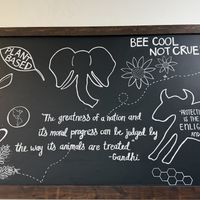 PLANT
BASED
BEE COOL
NOT CRUE
The greatness of a nation and
its moral progress can be judged by
the way its animals are treated
-Gandhi
"PROTECTI
IS THE
ENLIG